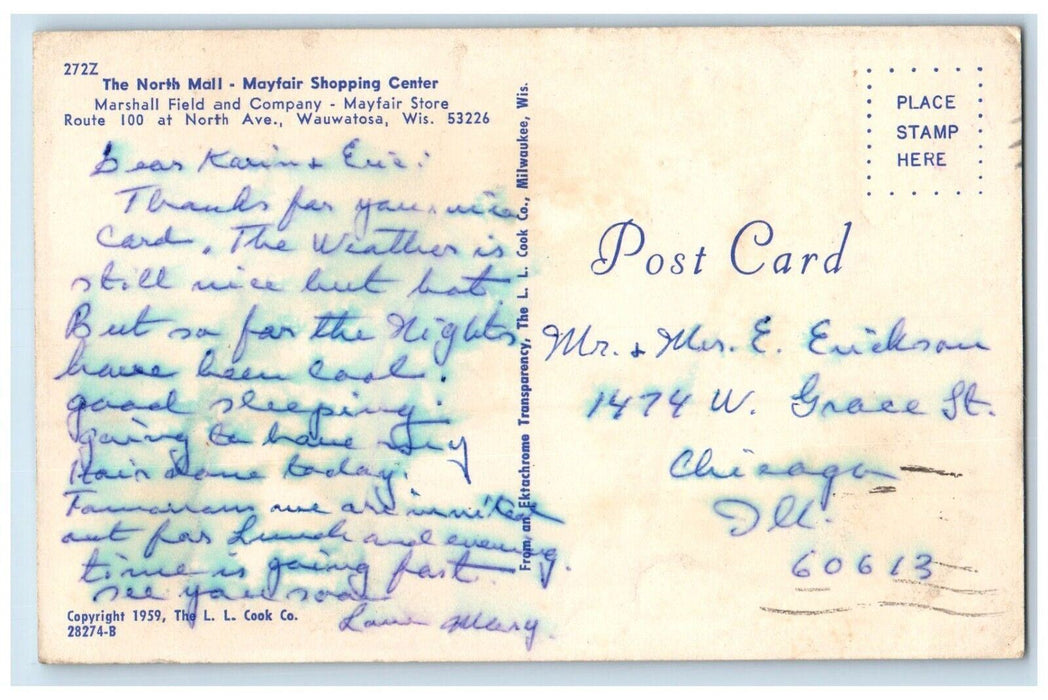 272Z
The North Mall - Mayfair Shopping Center
Marshall Field and Company - Mayfair Store
Route 100 at North Ave., Wauwatosa, Wis. 53226
Dear Karin + Eric:
Thanks for your nice
Card. The Weather is
still nice but hot.
But so far the Nights
have been cool.
good sleeping.
going to have my
Hair done today.
Tomorrow we are invited
out for Lunch and evening.
time is going fast.
see you soon
Love Mary.
Copyright 1959, The L. L. Cook Co.
28274-B
From an Ektachrome Transparency, The L. L. Cook Co., Milwaukee, Wis.
PLACE
STAMP
HERE
Post Card
Mr. + Mrs. E. Erickson
1474 W. Grace St.
Chicago
Ill.
60613